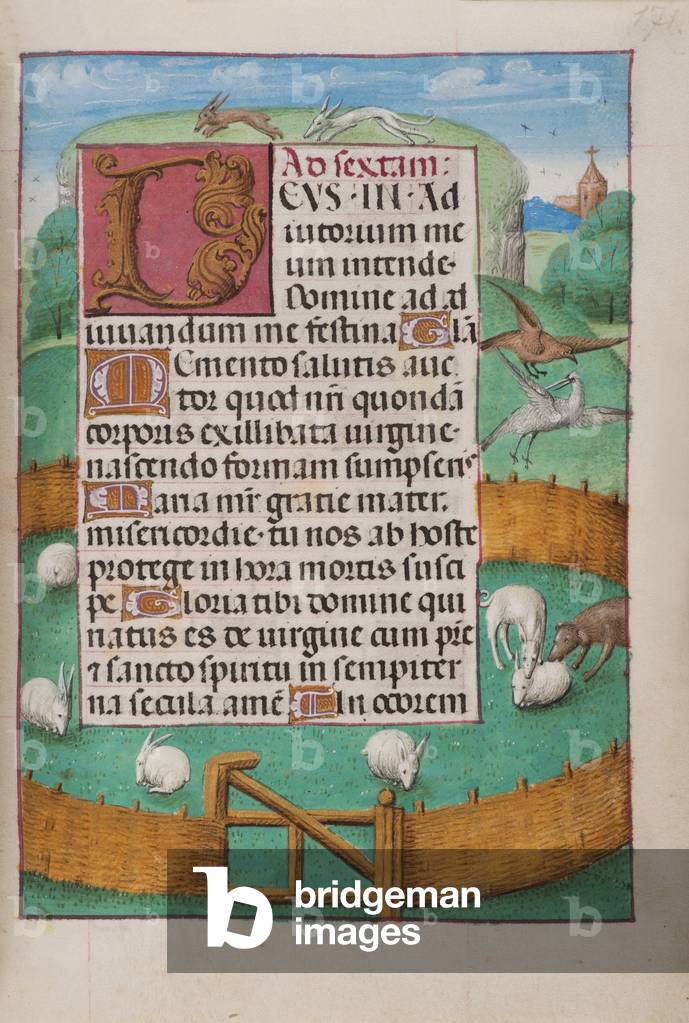 Ad sextam:
DEVS · IN · Ad
iutorium me
um intende·
Domine ad ad
iuuandum me festina Glã
Memento salutis auc
tor quod nr̃i quondã
corporis ex illibata uirgine·
nascendo formam sumpseris
Maria mr̃ gratie mater.
misericordie· tu nos ab hoste
protege in hora mortis susci
pe. Gloria tibi domine qui
natus es de uirgine cum pr̃e
⁊ sancto spiritu in sempiter
na secula amẽ In odorem
bridgeman
images